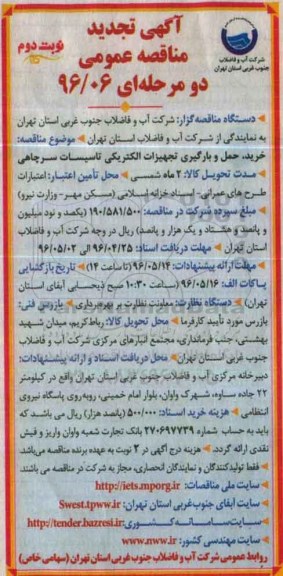 آگهی تجدید
مناقصه عمومی
دو مرحله‌ای ۹۶/۰۶
نوبت دوم
شرکت آب و فاضلاب
جنوب غربی استان تهران
دستگاه مناقصه‌گزار: شرکت آب و فاضلاب جنوب غربی استان تهران
به نمایندگی از شرکت آب و فاضلاب استان تهران موضوع مناقصه:
خرید، حمل و بارگیری تجهیزات الکتریکی تاسیسات سرچاهی
مدت تحویل کالا: ۲ ماه شمسی محل تأمین اعتبار: اعتبارات
طرح‌های عمرانی- اسناد خزانه اسلامی (مسکن مهر- وزارت نیرو)
مبلغ سپرده شرکت در مناقصه: ۱۹۰/۵۸۱/۵۰۰ (یکصد و نود میلیون
و پانصد و هشتاد و یک هزار و پانصد) ریال در وجه شرکت آب و فاضلاب
استان تهران مهلت دریافت اسناد: ۹۶/۰۴/۲۵ الی ۹۶/۰۵/۰۲
مهلت ارائه پیشنهادات: ۹۶/۰۵/۱۴ (تا ساعت ۱۴) تاریخ بازگشایی
پاکات الف: ۹۶/۰۵/۱۶ (ساعت ۱۰:۳۰ صبح ذیحسابی آبفای استان
تهران) دستگاه نظارت: معاونت نظارت بر بهره‌برداری بازرس فنی:
بازرس مورد تأیید کارفرما محل تحویل کالا: رباط‌کریم، میدان شهید
بهشتی، جنب فرمانداری، مجتمع انبارهای مرکزی شرکت آب و فاضلاب
جنوب غربی استان تهران محل دریافت اسناد و ارائه پیشنهادات:
دبیرخانه مرکزی آب و فاضلاب جنوب غربی استان تهران واقع در کیلومتر
۲۲ جاده ساوه، شهرک واوان، بلوار امام خمینی، روبه‌روی پاسگاه نیروی
انتظامی هزینه خرید اسناد: ۵۰۰/۰۰۰ (پانصد هزار) ریال می باشد که
باید به حساب شماره ۲۷۰۶۹۷۷۳۹ بانک تجارت شعبه واوان واریز و فیش
نقدی ارائه گردد. هزینه درج آگهی در ۲ نوبت به عهده برنده مناقصه می‌باشد.
فقط تولیدکنندگان و نمایندگان انحصاری، مجاز به شرکت در مناقصه می باشند.
سایت ملی مناقصات: http://iets.mporg.ir
سایت آبفای جنوب‌غربی استان تهران: Swest.tpww.ir
سایت سامانه کشوری: http://tender.bazresi.ir
سایت مهندسی کشور: www.nww.ir
روابط عمومی شرکت آب و فاضلاب جنوب غربی استان تهران (سهامی خاص)